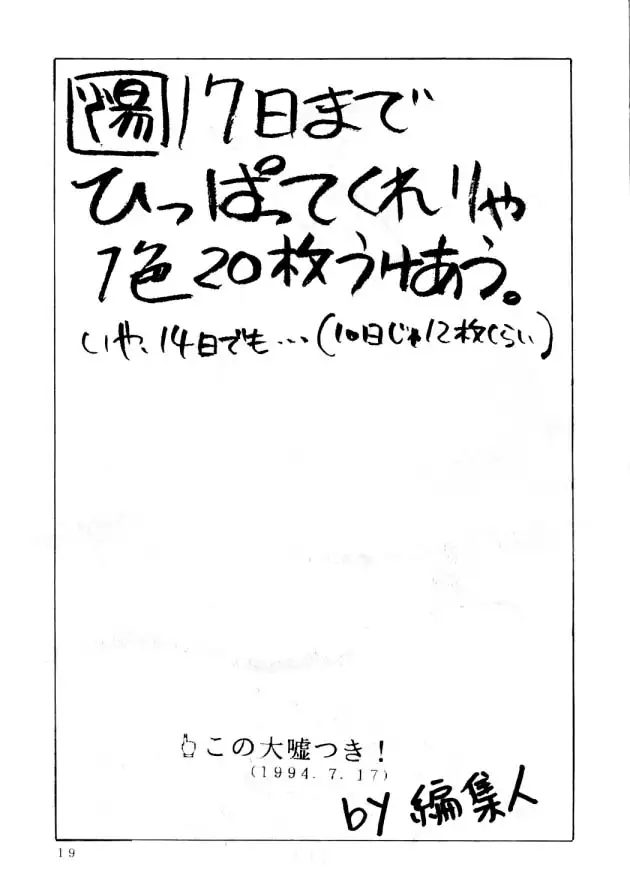 陽17日まで
ひっぱってくれりゃ
1色20枚うけあう。
いや、14日でも…(10日じゃ12枚くらい)
この大嘘つき!
(1994.7.17)
by 編集人
19